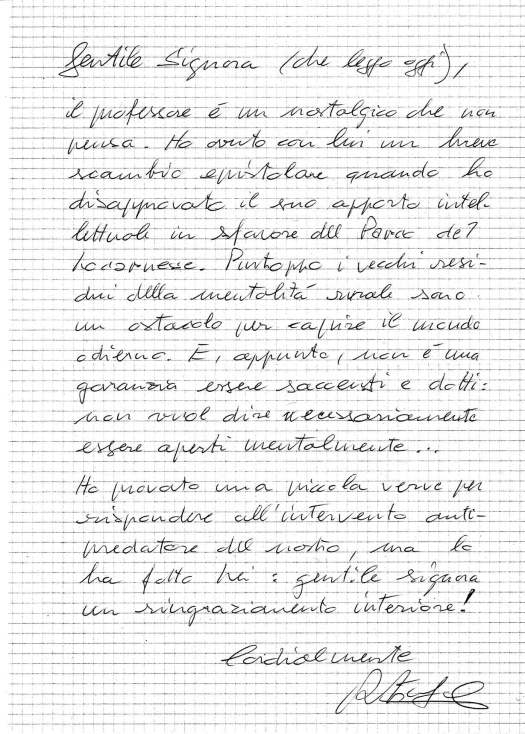 Gentile Signora (che leggo oggi),
il professore é un nostalgico che non
pensa. Ho avuto con lui un breve
scambio epistolare quando ho
disapprovato il suo apporto intel-
lettuale in sfavore del Parco del
Locarnese. Purtroppo i vecchi resi-
dui della mentalità rurale sono
un ostacolo per capire il mondo
odierno. E, appunto, non é una
garanzia essere saccenti e dotti:
non vuol dire necessariamente
essere aperti mentalmente...
Ho provato una piccola verve per
rispondere all'intervento anti-
predatore del nostro, ma lo
ha fatto Lei: gentile signora
un ringraziamento interiore!
Cordialmente